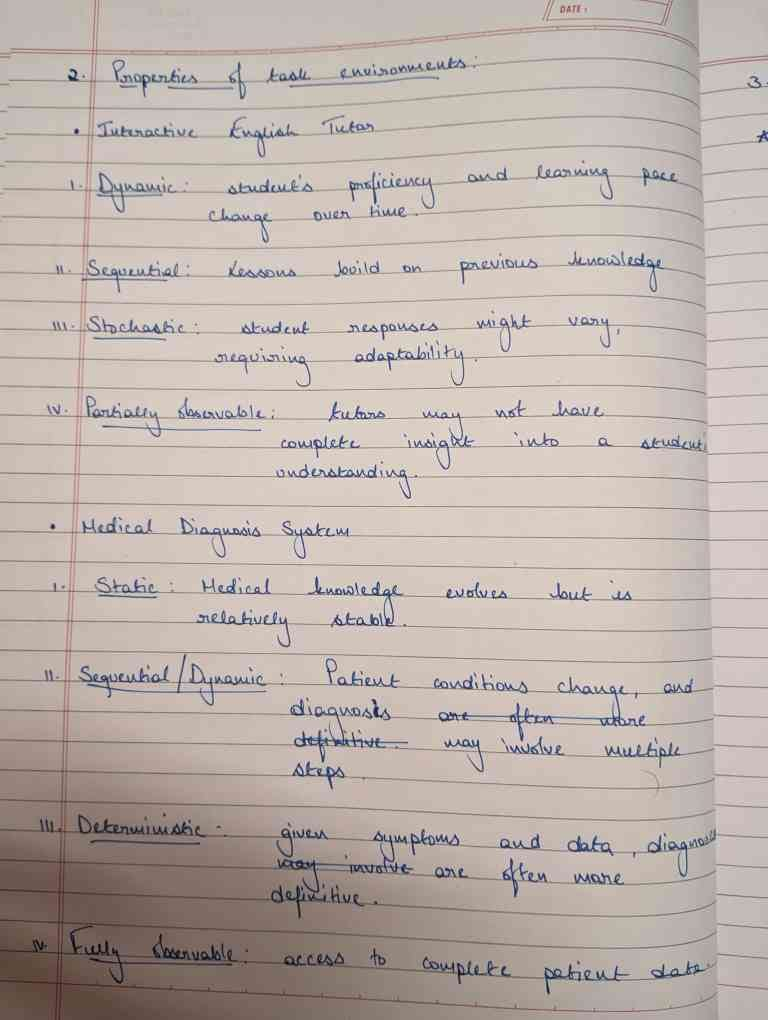 DATE :
2. Properties of task environments:
3.
• Interactive English Tutor
I. Dynamic: student's proficiency and learning pace
change over time.
II. Sequential: Lessons build on previous knowledge
III. Stochastic: student responses might vary,
requiring adaptability.
IV. Partially observable: tutors may not have
complete insight into a student
understanding.
• Medical Diagnosis System
I. Static: Medical knowledge evolves but is
relatively stable.
II. Sequential/Dynamic: Patient conditions change, and
diagnosis are often more
definitive. may involve multiple
steps.
III. Deterministic: given symptoms and data, diagnosis
may involve are often more
definitive.
IV. Fully observable: access to complete patient data.